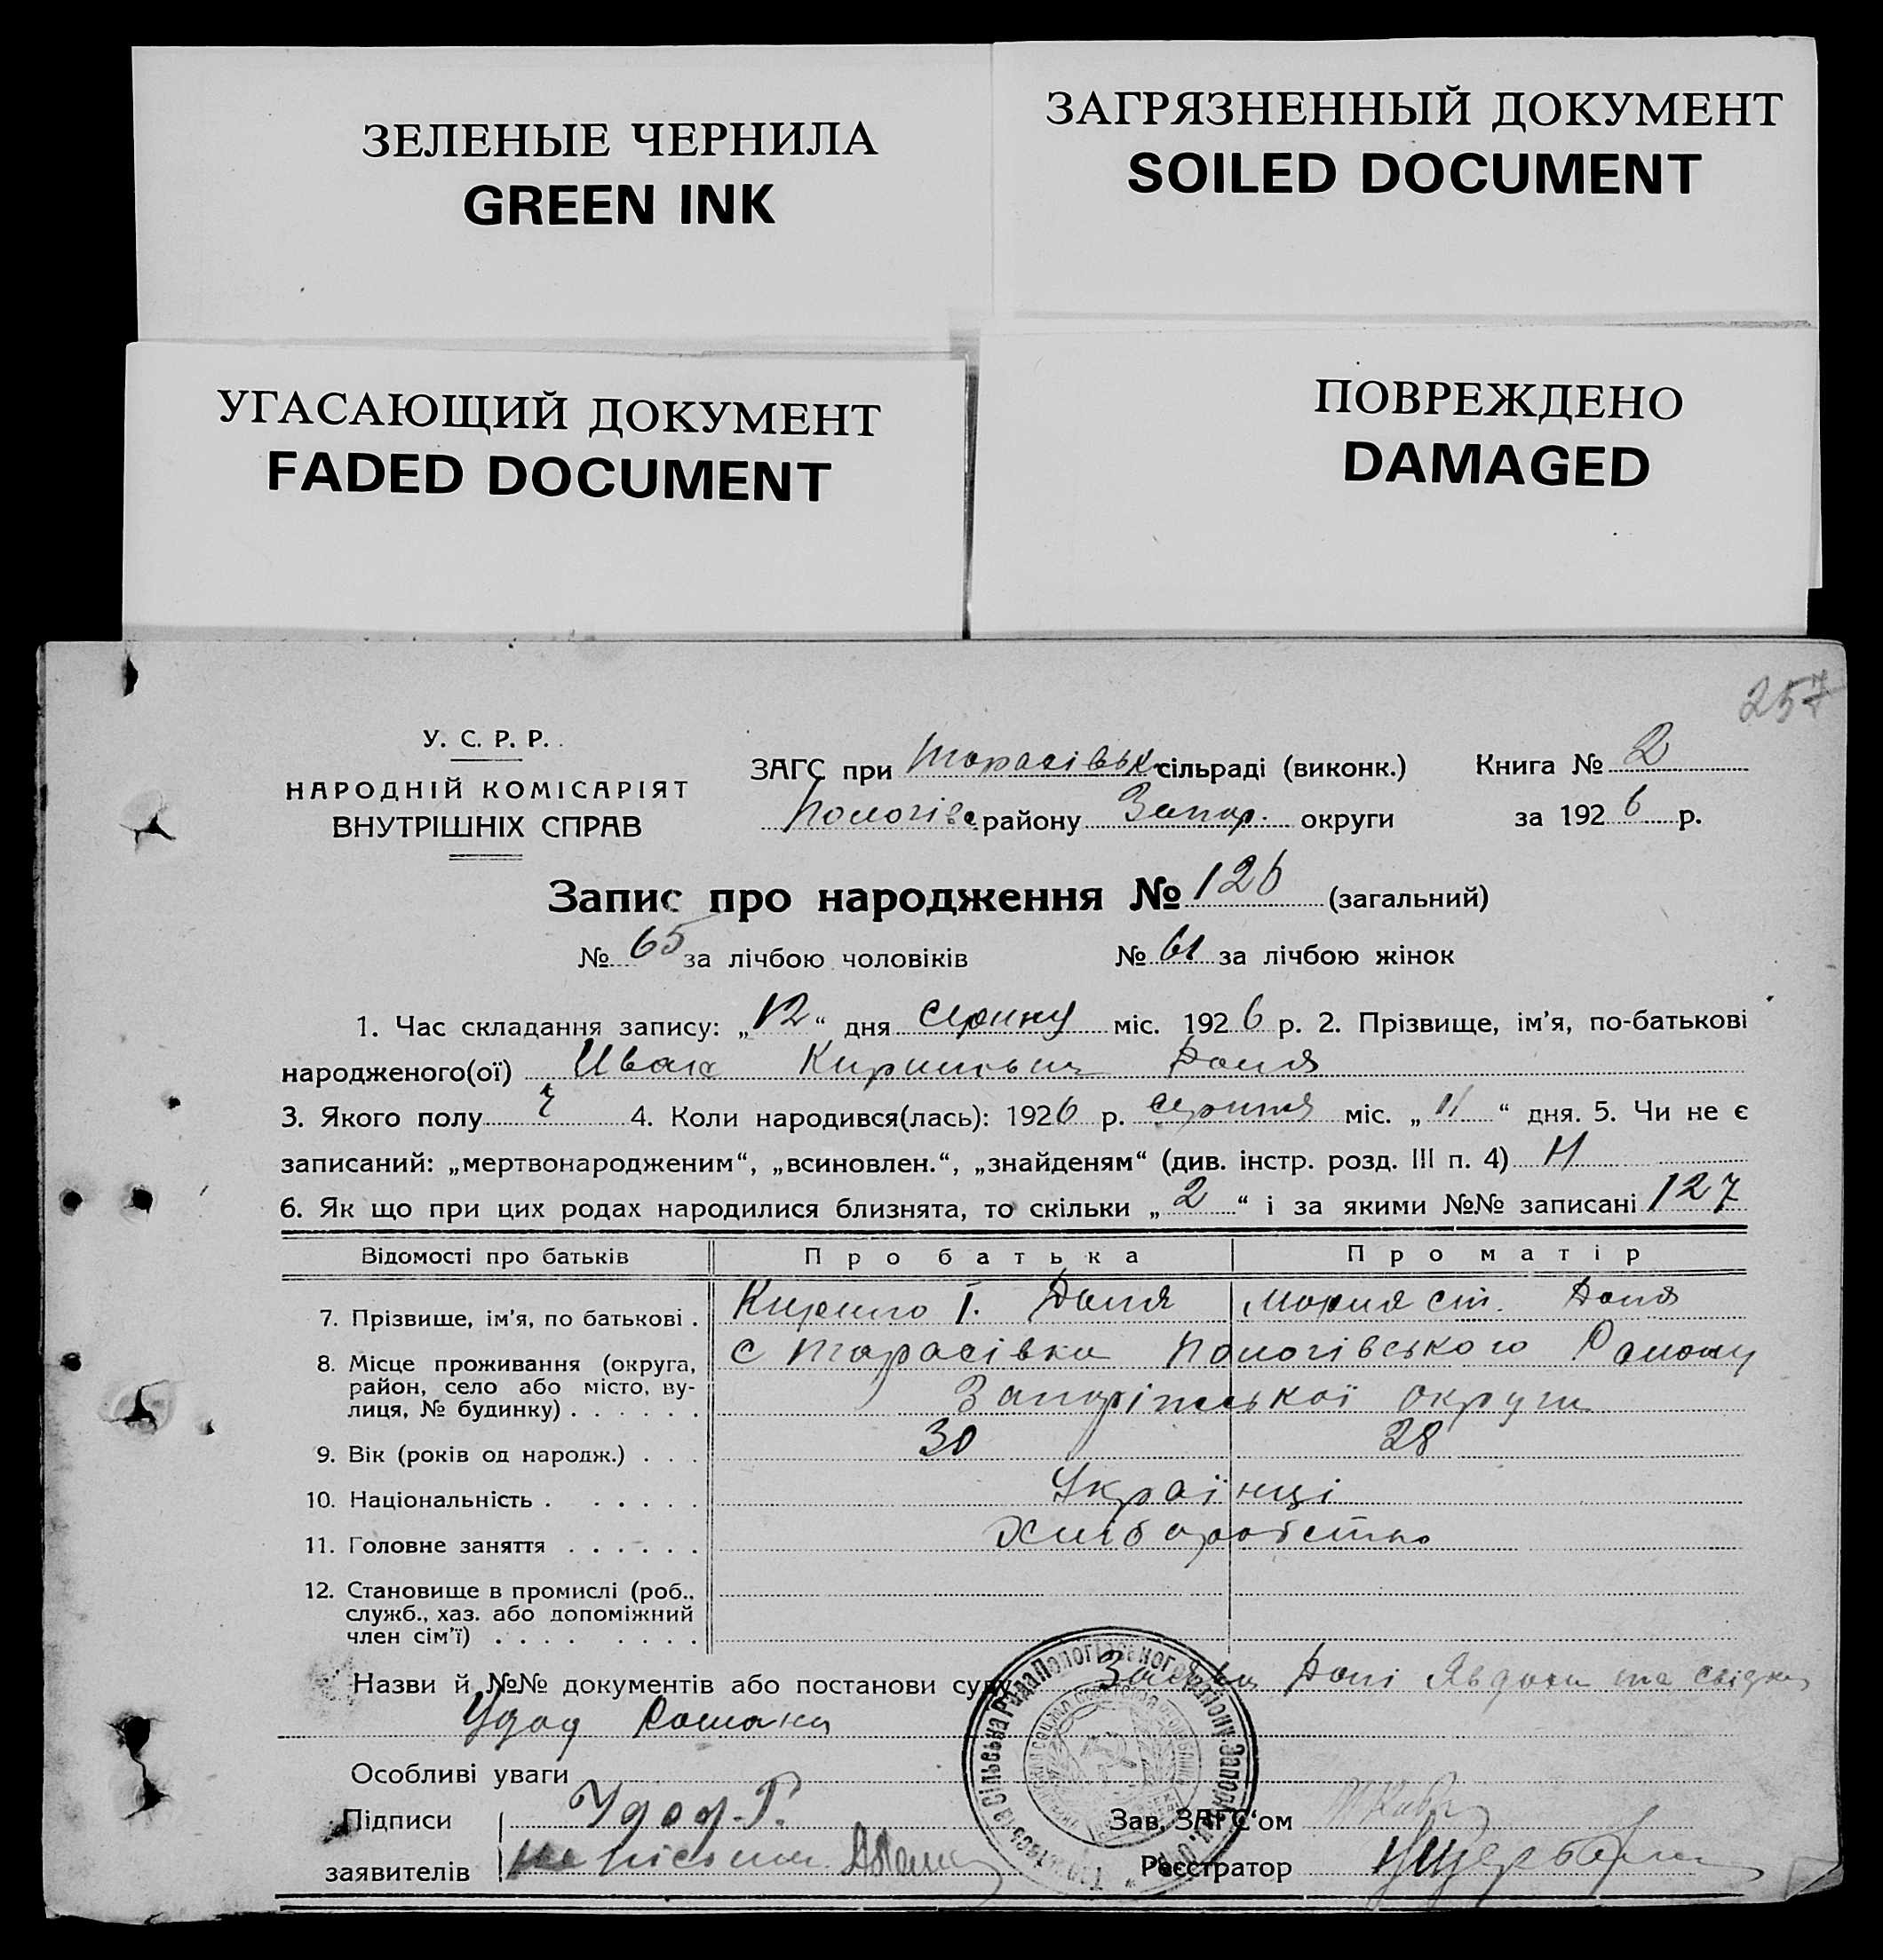 ЗЕЛЕНЫЕ ЧЕРНИЛА
GREEN INK
ЗАГРЯЗНЕННЫЙ ДОКУМЕНТ
SOILED DOCUMENT
УГАСАЮЩИЙ ДОКУМЕНТ
FADED DOCUMENT
ПОВРЕЖДЕНО
DAMAGED
257
У. С. Р. Р.
НАРОДНІЙ КОМІСАРІЯТ
ВНУТРІШНІХ СПРАВ
ЗАГС при Тарасівськ сільраді (виконк.)
Пологівс району Запор. округи
Книга № 2
за 1926 р.
Запис про народження № 126 (загальний)
№ 65 за лічбою чоловіків № 61 за лічбою жінок
1. Час складання запису: „12“ дня серпну міс. 1926 р. 2. Прізвище, ім’я, по-батькові
народженого(ої) Иван Кирилович Доля
3. Якого полу ч 4. Коли народився(лась): 1926 р. серпня міс. „11“ дня. 5. Чи не є
записаний: „мертвонародженим“, „всиновлен.“, „знайденям“ (див. інстр. розд. III п. 4) Н
6. Як що при цих родах народилися близнята, то скільки „2“ і за якими №№ записані 127
Відомості про батьків Про батька Про матір
7. Прізвище, ім’я, по батькові . Кирило І. Доля Мария Ст. Доля
8. Місце проживання (округа, с Тарасівка Пологівського Району
район, село або місто, ву-
лиця, № будинку) . . . . . . Запоріжської округи
9. Вік (років од народж.) . . . 30 28
10. Національність . . . . . . Українці
11. Головне заняття . . . . . . Хліборобство
12. Становище в промислі (роб.,
служб., хаз. або допоміжний
член сім’ї) . . . . . . . .
Назви й №№ документів або постанови суду Заява Долі Явдохи та свідка
Удод Романа
Особливі уваги
Підписи Удод. Р. Зав. ЗАГС‘ом
заявителів Реєстратор